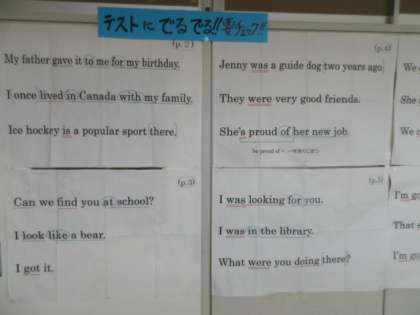 テストにでるでる!!要チェック!!
(p.2)
My father gave it to me for my birthday.
I once lived in Canada with my family.
Ice hockey is a popular sport there.
(p.4)
Jenny was a guide dog two years ago.
They were very good friends.
She's proud of her new job.
be proud of
(p.3)
Can we find you at school?
I look like a bear.
I got it.
(p.5)
I was looking for you.
I was in the library.
What were you doing there?
We
She
We c
I'm go
That s
I'm go